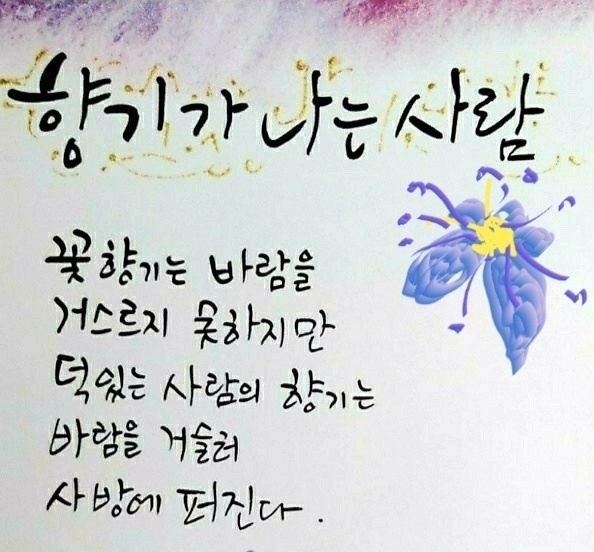 향기가 나는 사람
꽃향기는 바람을
거스르지 못하지만
덕있는 사람의 향기는
바람을 거슬러
사방에 퍼진다.